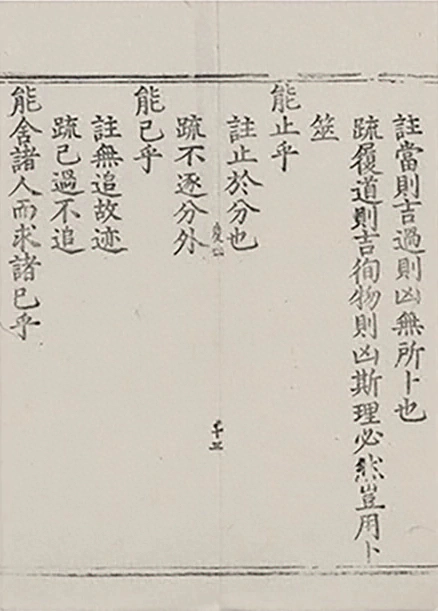 註當則吉過則凶無所卜也
䟽履道則吉徇物則凶斯理必然豈用卜
筮
能止乎
註止於分也
䟽不逐分外
能已乎
註無追故迹
䟽已過不追
能舍諸人而求諸已乎